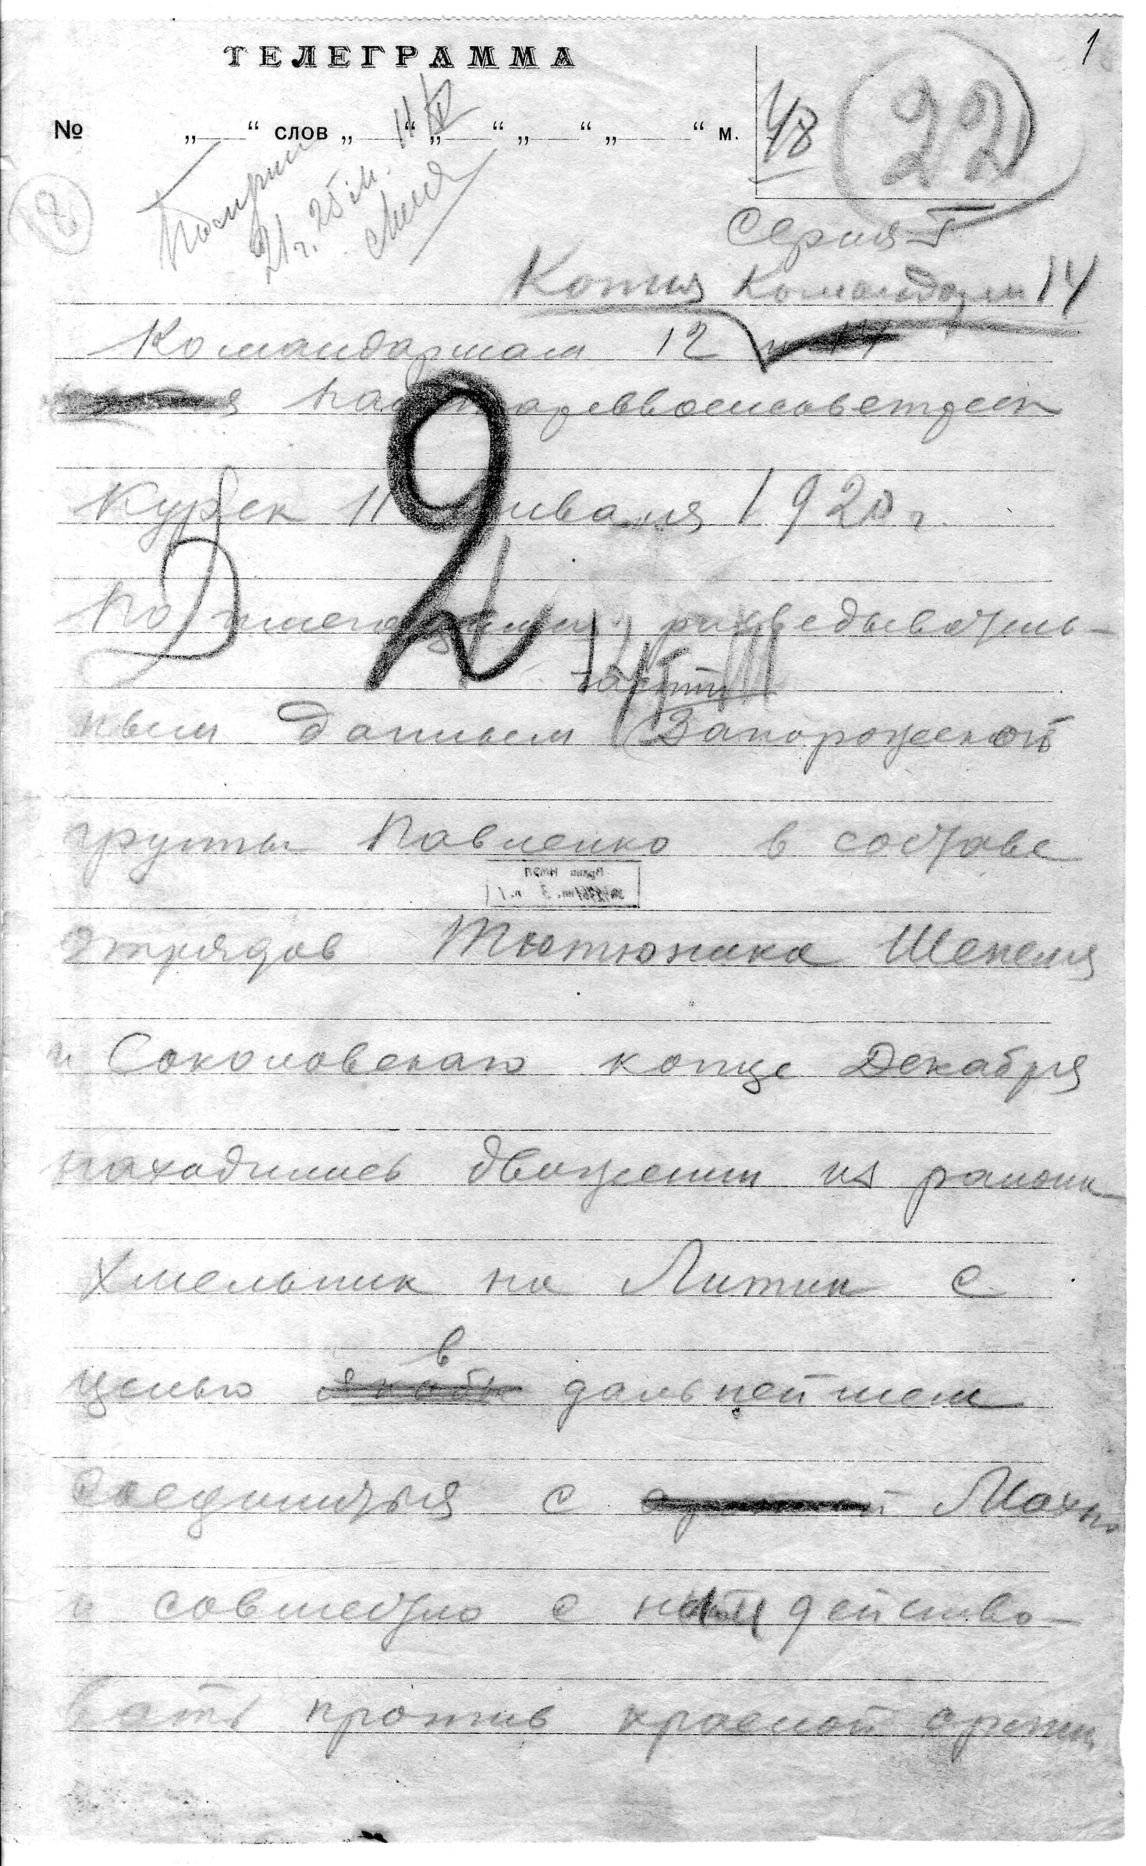 1
ТЕЛЕГРАММА
48
22
№ „ “ слов „ “ „ “ „ “ „ “ м.
21 г. 25 м.
Серия Г
Копия Командарм 14
Командармам 12
Курск 11 января 1920 г.
2
По имеющимся разведыватель-
ным данным Запорожской
группы Павленко в составе
отрядов Тютюника Шепеля
и Соколовскаго конце Декабря
находились движении из района
Хмельник на Литин с
целью в дальнейшем
соединиться с Махно
и совместно с ним действо-
вать против красной армии